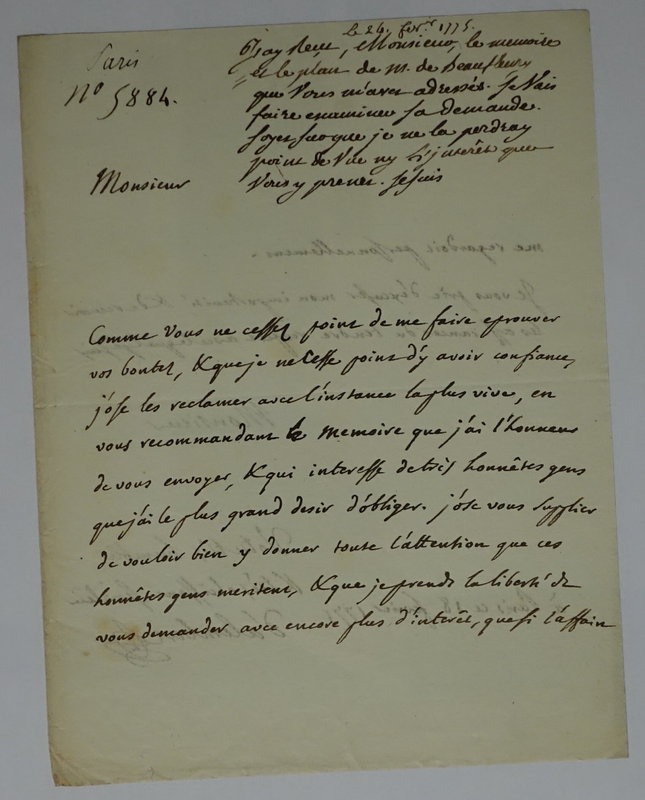 Le 24. fev.er 1775.
Paris
N° 5884.
J'ay Reçu, Monsieur, le memoire
et le plan de M. de Beaufleury
que Vous m'avez adressés. Je Vais
faire examiner sa demande.
Soyez sur que je ne la perdray
point de Vüe ny L'jnterêt que
Vous y prenez. Je suis
Monsieur
Comme Vous ne cessez point de me faire eprouver
vos bontez, & que je ne Cesse point d'y avoir confiance,
j'ose les reclamer avec l'instance la plus vive, en
vous recommandant le Memoire que j'ai l'honneur
de vous envoyer, & qui interesse de très honnêtes gens
que j'ai le plus grand desir d'obliger. j'ose vous supplier
de vouloir bien y donner toute l'attention que ces
honnêtes gens meritent, & que je prends la liberté de
vous demander avec encore plus d'interêt, que si l'affaire
me regardoit personnellement.